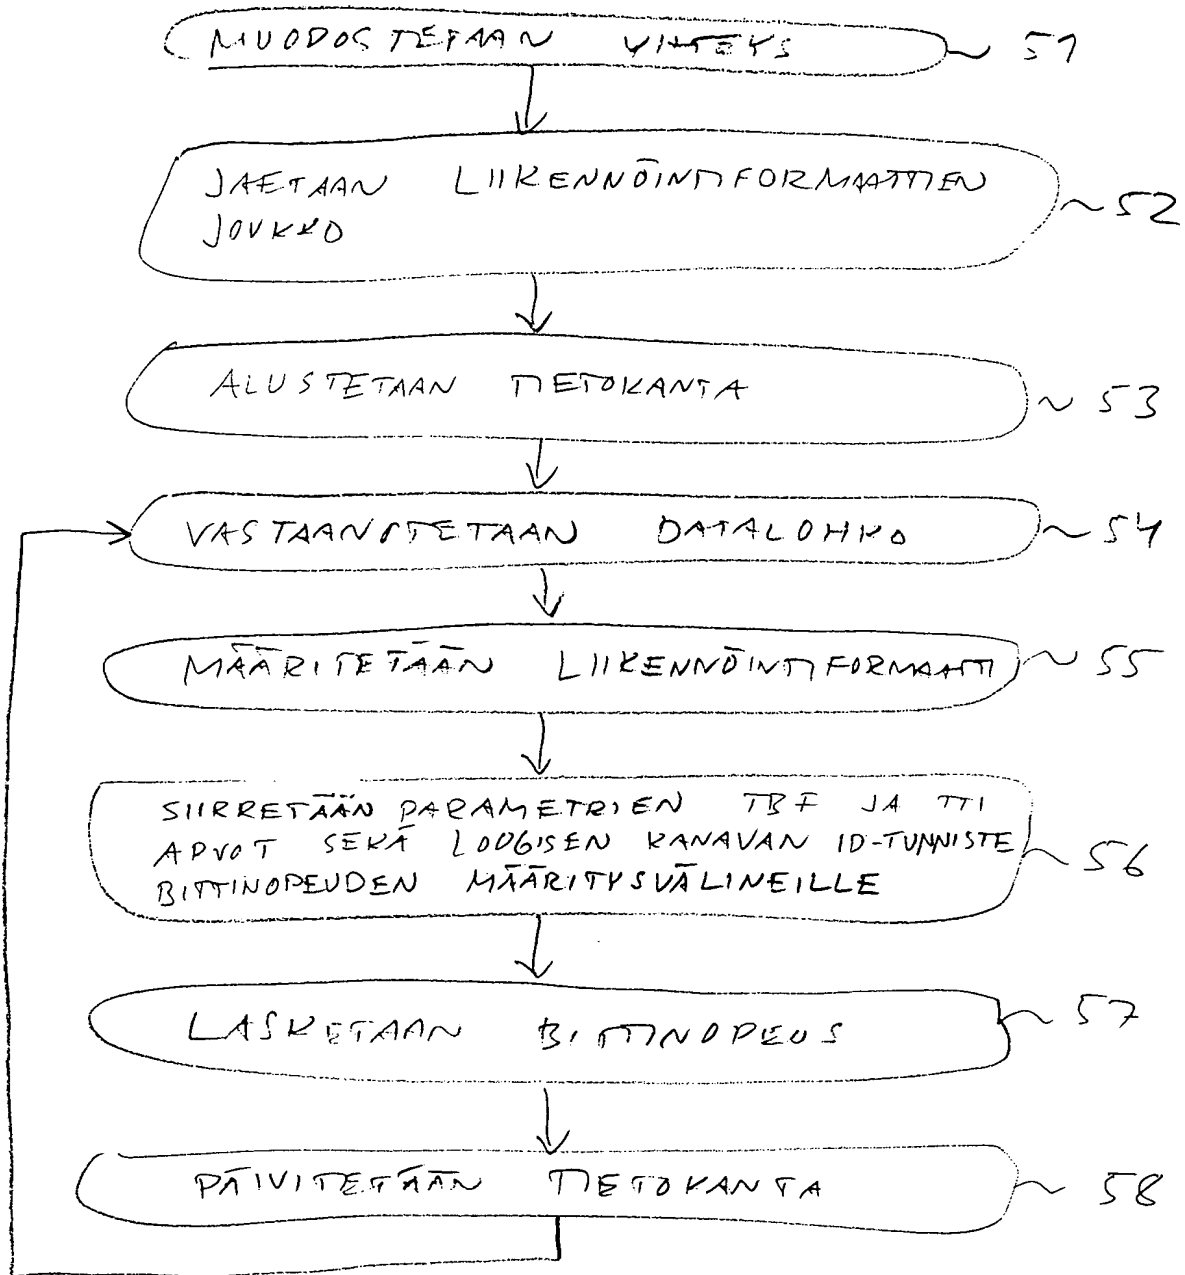 MUODOSTETAAN YHTEYS ~ 51
JAETAAN LIIKENNÖINTIFORMAATTIEN
JOUKKO
~ 52
ALUSTETAAN TIETOKANTA ~ 53
VASTAANOTETAAN DATALOHKO ~ 54
MÄÄRITETÄÄN LIIKENNÖINTIFORMAATTI ~ 55
SIIRRETÄÄN PARAMETRIEN TBF JA TTI
ARVOT SEKÄ LOOGISEN KANAVAN ID-TUNNISTE
BITTINOPEUDEN MÄÄRITYSVÄLINEILLE
~ 56
LASKETAAN BITTINOPEUS ~ 57
PÄIVITETÄÄN TIETOKANTA ~ 58